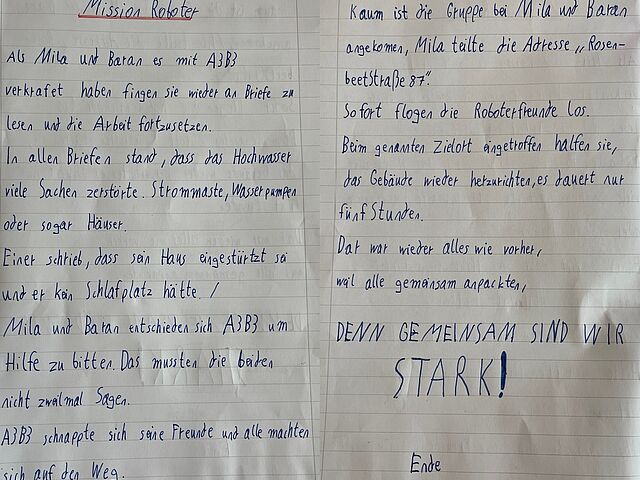 Mission Roboter
Als Mila und Baran es mit A3B3
verkrafet haben fingen sie wieder an Briefe zu
lesen und die Arbeit fortzusetzen.
In allen Briefen stand, dass das Hochwasser
viele Sachen zerstörte. Strommaste, Wasserpumpen
oder sogar Häuser.
Einer schrieb, dass sein Haus eingestürtzt sei
und er kein Schlafplatz hätte. /
Mila und Baran entschieden sich A3B3 um
Hilfe zu bitten. Das mussten die beiden
nicht zweimal Sagen.
A3B3 schnappte sich seine Freunde und alle machten
sich auf den Weg.
Kaum ist die Gruppe bei Mila und Baran
angekomen, Mila teilte die Adresse „Rosen-
beetStraße 87".
Sofort flogen die Roboterfreunde los.
Beim genannten Zielort eingetroffen halfen sie,
das Gebäude wieder herzurichten, es dauert nur
fünf Stunden.
Dar war wieder alles wie vorher,
weil alle gemeinsam anpackten,
DENN GEMEINSAM SIND WIR
STARK!
Ende